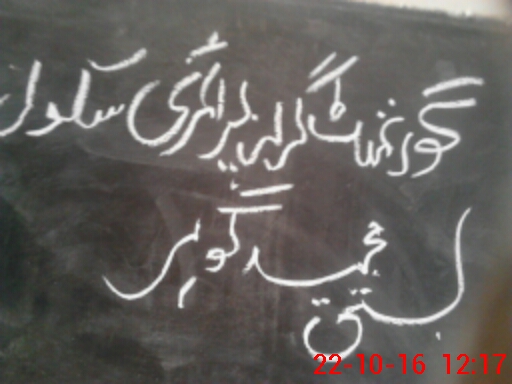 گورنمنٹ گرلز پرائمری سکول
بستی مجید گوہر
22-10-16 12:17